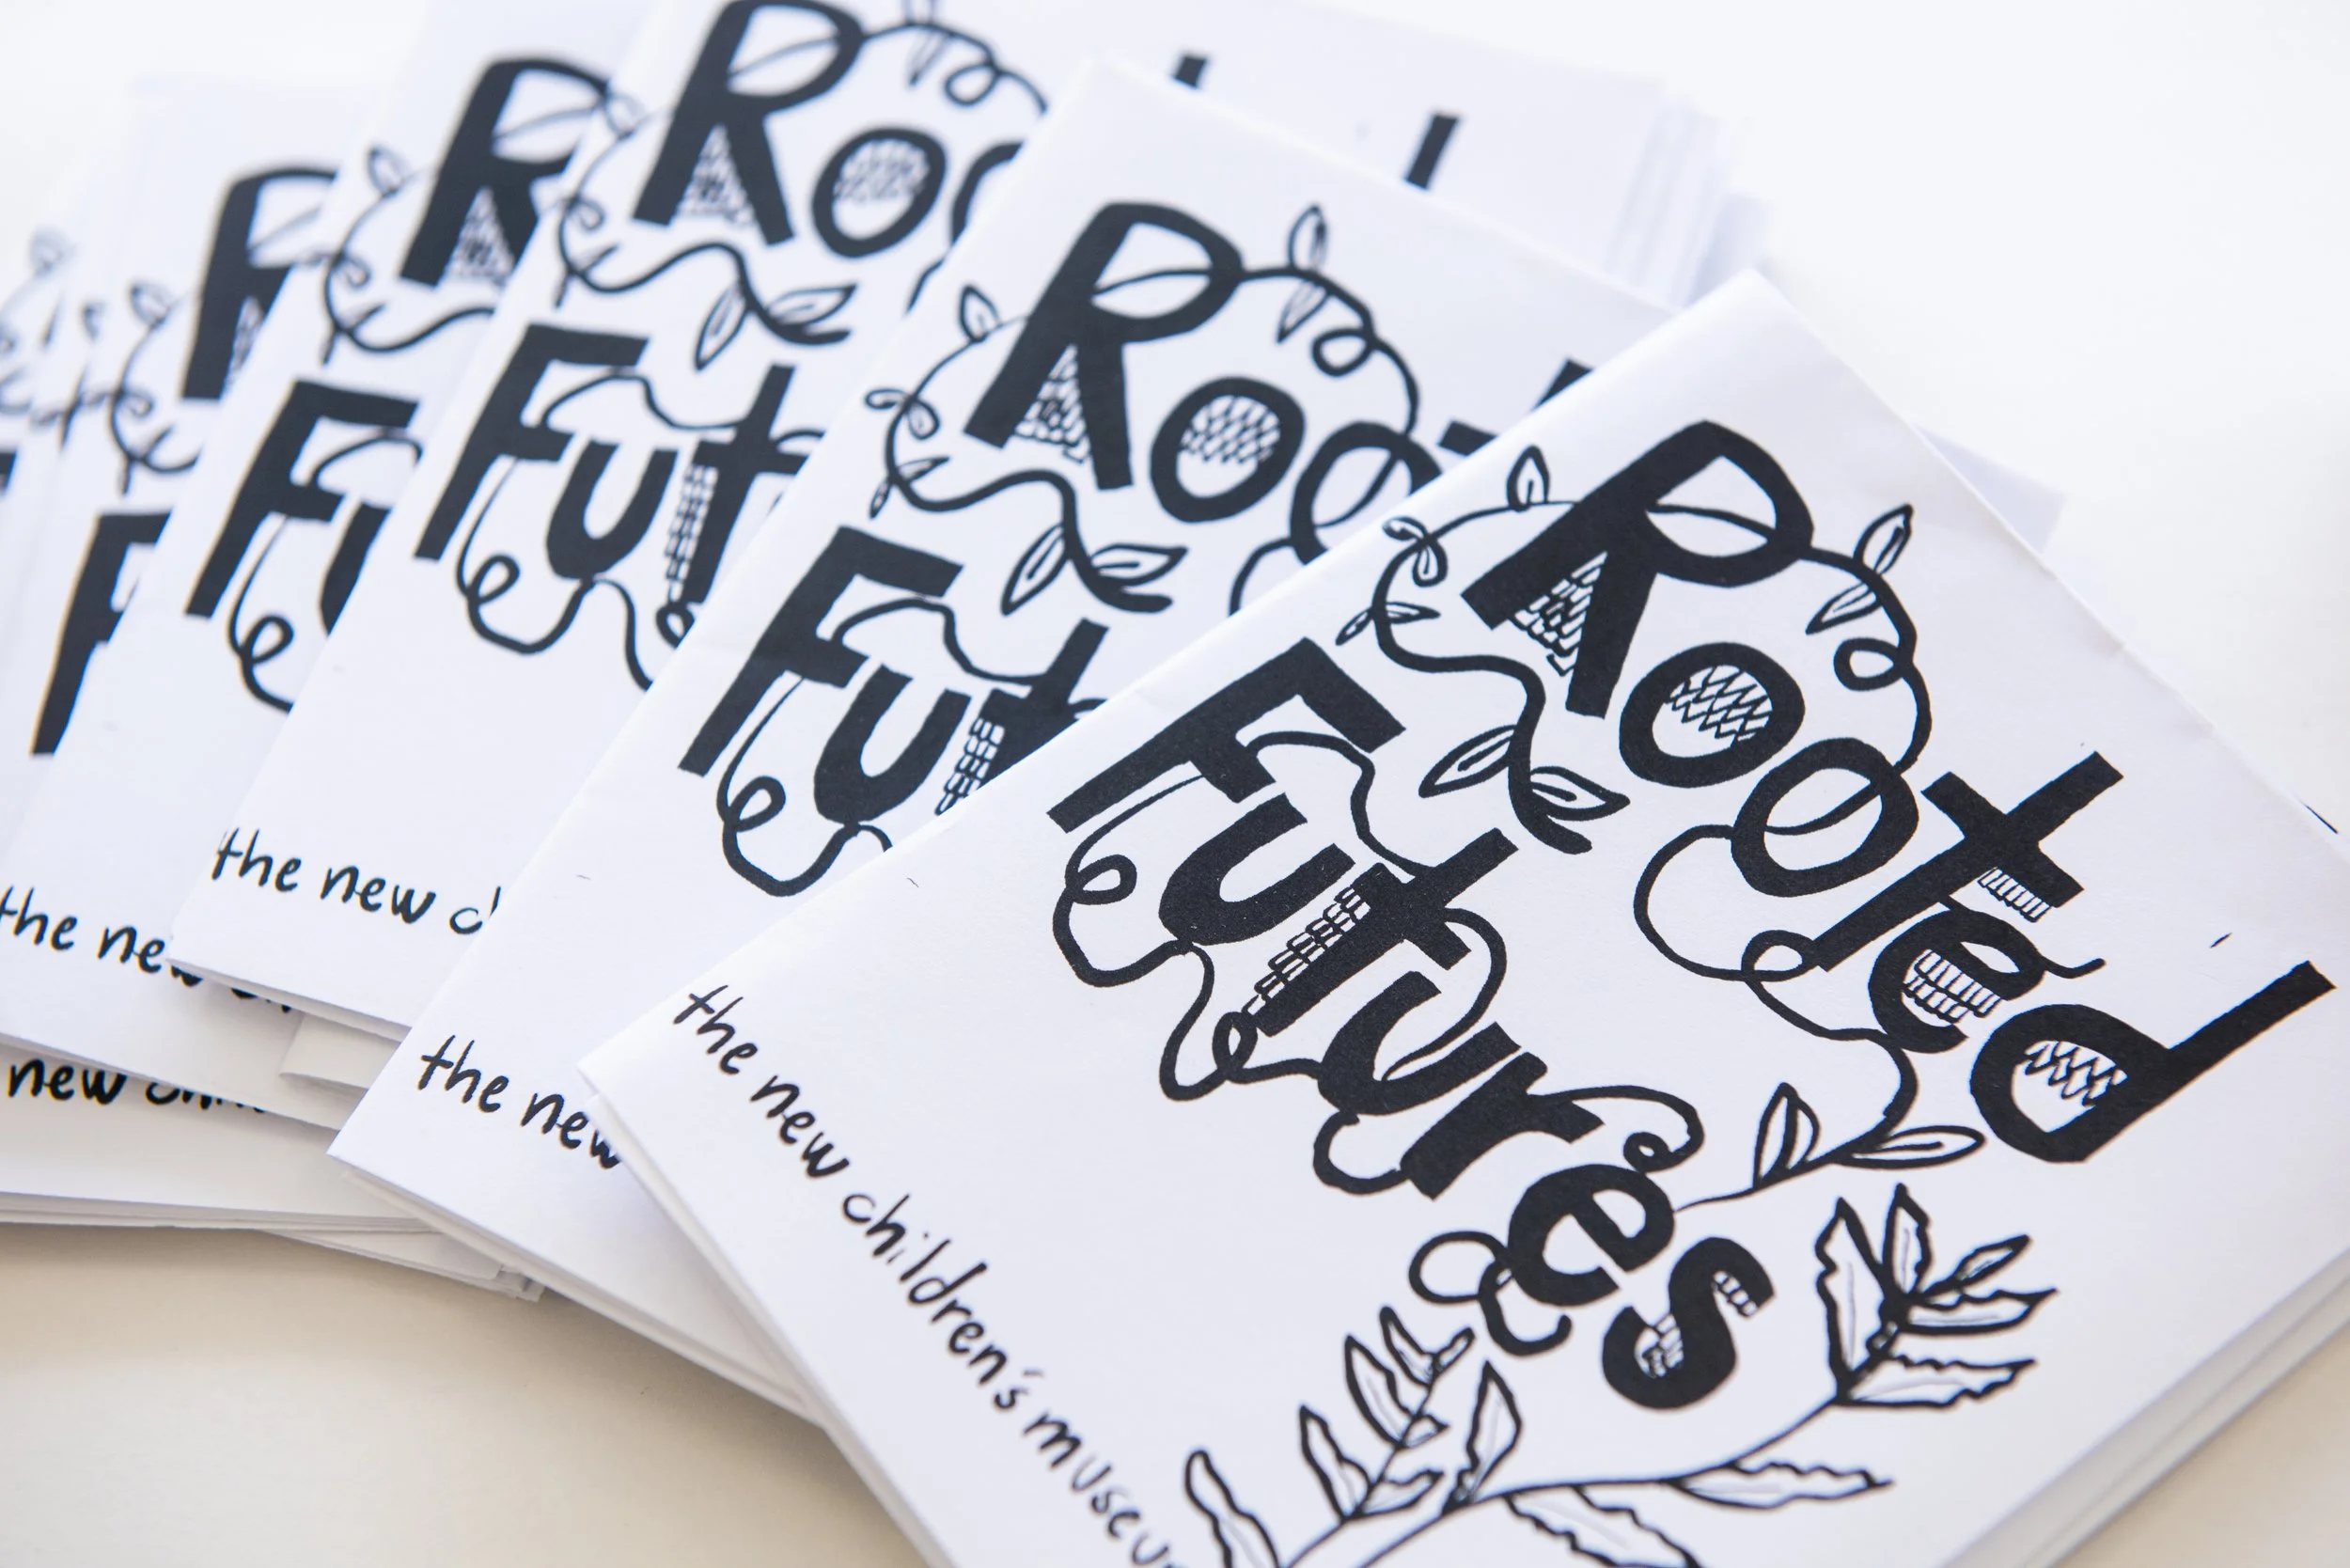 Rooted
Futures
the new children's museu
Roo
Fut
the new
Roo
Fut
the new
R
Fu
the ne
new